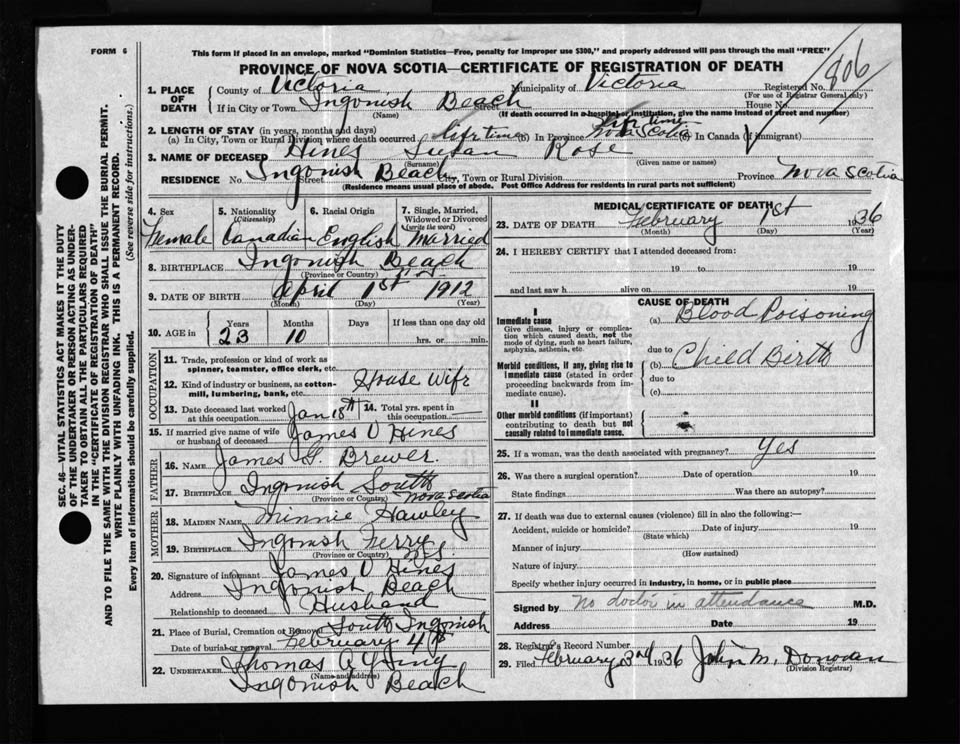 FORM 6
This form if placed in an envelope, marked "Dominion Statistics—Free, penalty for improper use $300," and properly addressed will pass through the mail "FREE"
PROVINCE OF NOVA SCOTIA—CERTIFICATE OF REGISTRATION OF DEATH
806
1. PLACE OF DEATH
County of Victoria Municipality of Victoria Registered No.
(For use of Registrar General only)
If in City or Town Ingonish Beach Street House No.
(Name) (If death occurred in a hospital or institution, give the name instead of street and number)
2. LENGTH OF STAY (in years, months and days)
(a) In City, Town or Rural Division where death occurred life time (b) In Province life time Nova Scotia (c) In Canada (if immigrant)
3. NAME OF DECEASED Hines Susan Rose
(Surname) (Given name or names)
RESIDENCE No. Ingonish Beach Street City, Town or Rural Division Province Nova Scotia
(Residence means usual place of abode. Post Office Address for residents in rural parts not sufficient)
4. Sex 5. Nationality (Citizenship) 6. Racial Origin 7. Single, Married, Widowed or Divorced (write the word)
Female Canadian English Married
8. BIRTHPLACE Ingonish Beach
(Province or Country)
9. DATE OF BIRTH April 1st 1912
(Month) (Day) (Year)
10. AGE in Years Months Days If less than one day old
23 10 hrs. or min.
OCCUPATION
11. Trade, profession or kind of work as spinner, teamster, office clerk, etc.
12. Kind of industry or business, as cotton-mill, lumbering, bank, etc. House Wife
13. Date deceased last worked at this occupation Jan 18th 14. Total yrs. spent in this occupation
15. If married give name of wife or husband of deceased James V Hines
FATHER
16. Name James S. Brewer
17. Birthplace Ingonish South Nova Scotia
(Province or Country)
MOTHER
18. MAIDEN NAME Minnie Hawley
19. BIRTHPLACE Ingonish Ferry N S
(Province or Country)
20. Signature of informant James V Hines
Address Ingonish Beach
Relationship to deceased Husband
21. Place of Burial, Cremation or Removal South Ingonish
Date of burial or removal February 4th
22. UNDERTAKER Thomas
(Name and address)
Ingonish Beach
MEDICAL CERTIFICATE OF DEATH
23. DATE OF DEATH February 1st 1936
(Month) (Day) (Year)
24. I HEREBY CERTIFY that I attended deceased from:
19 to 19
and last saw h alive on 19
CAUSE OF DEATH
I
Immediate cause (a) Blood Poisoning
Give disease, injury or complication which caused death, not the mode of dying, such as heart failure, asphyxia, asthenia, etc.
due to
Morbid conditions, if any, giving rise to immediate cause (stated in order proceeding backwards from immediate cause).
(b) Child Birth
due to
(c)
II
Other morbid conditions (if important) contributing to death but not causally related to immediate cause.
25. If a woman, was the death associated with pregnancy? Yes
26. Was there a surgical operation? Date of operation 19
State findings Was there an autopsy?
27. If death was due to external causes (violence) fill in also the following:—
Accident, suicide or homicide? Date of injury 19
(State which)
Manner of injury
(How sustained)
Nature of injury
Specify whether injury occurred in industry, in home, or in public place
Signed by No doctor in attendance M.D.
Address Date 19
28. Registrar's Record Number
29. Filed February 3rd 1936 John M. Donovan
(Division Registrar)
SEC. 46—VITAL STATISTICS ACT MAKES IT THE DUTY
OF THE UNDERTAKER OR PERSON ACTING AS UNDER-
TAKER TO OBTAIN ALL THE PARTICULARS REQUIRED
IN THE "CERTIFICATE OF REGISTRATION OF DEATH"
AND TO FILE THE SAME WITH THE DIVISION REGISTRAR WHO SHALL ISSUE THE BURIAL PERMIT.
WRITE PLAINLY WITH UNFADING INK. THIS IS A PERMANENT RECORD.
Every item of information should be carefully supplied. (See reverse side for instructions.)